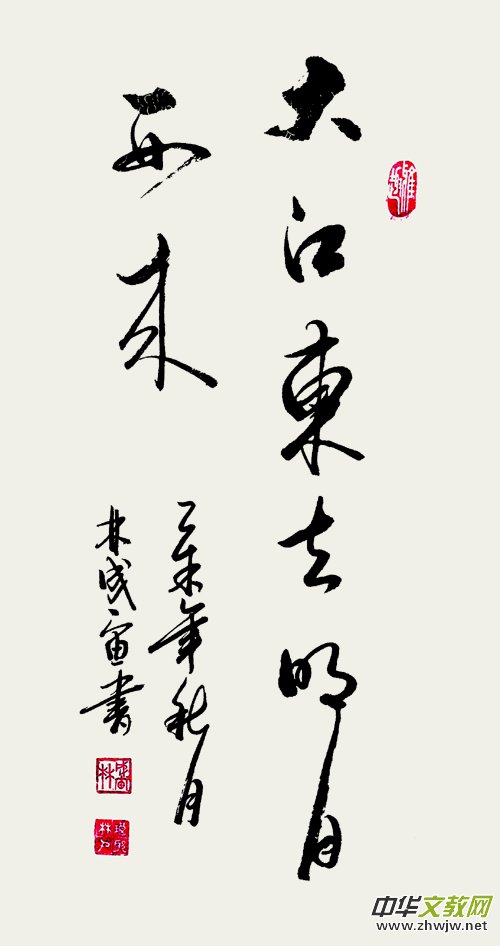 大江東去明月
西来
乙未年秋月
林成寅書
中华文教网
www.zhwjw.net